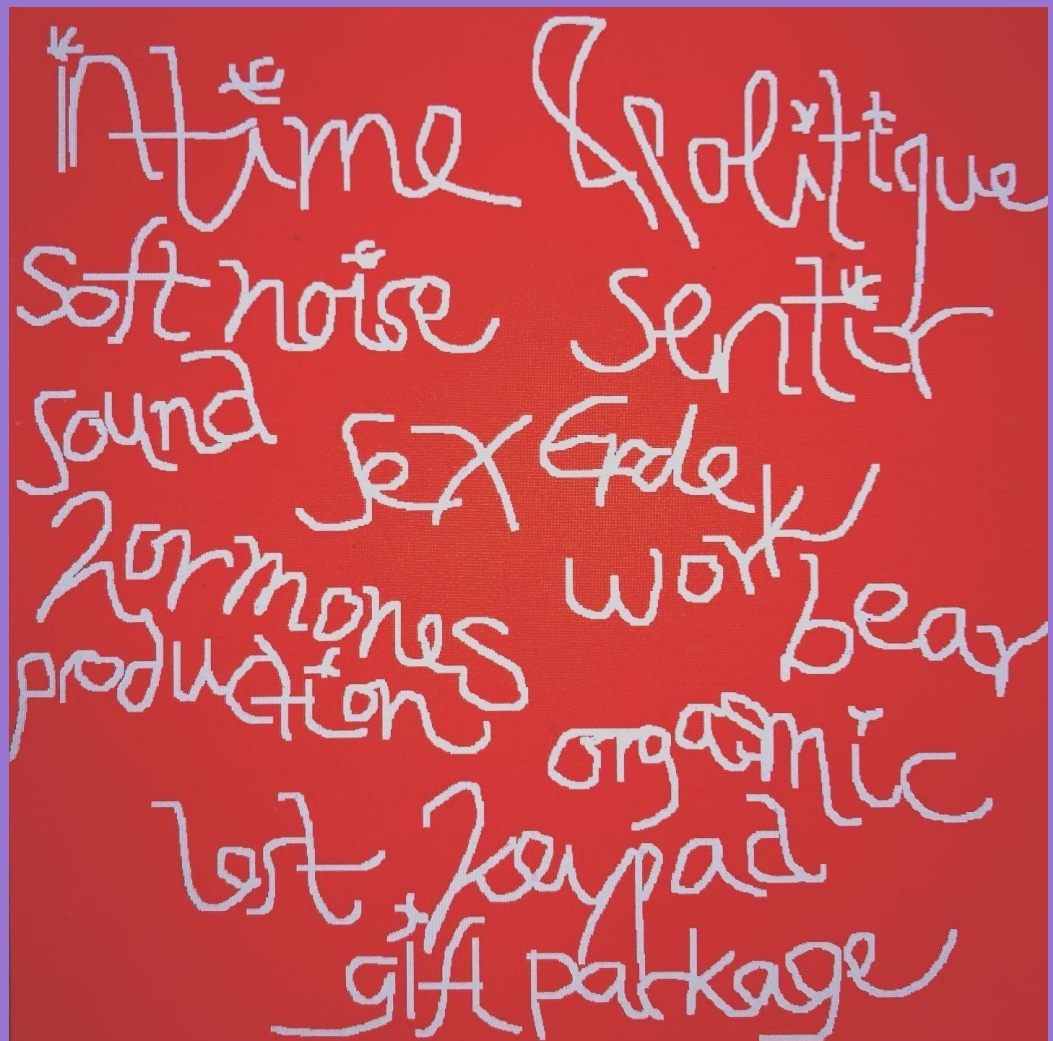 intime & politique
soft noise sentir
sound sex
work
hormones bear
production
orgasmic
lost keypad
gift package